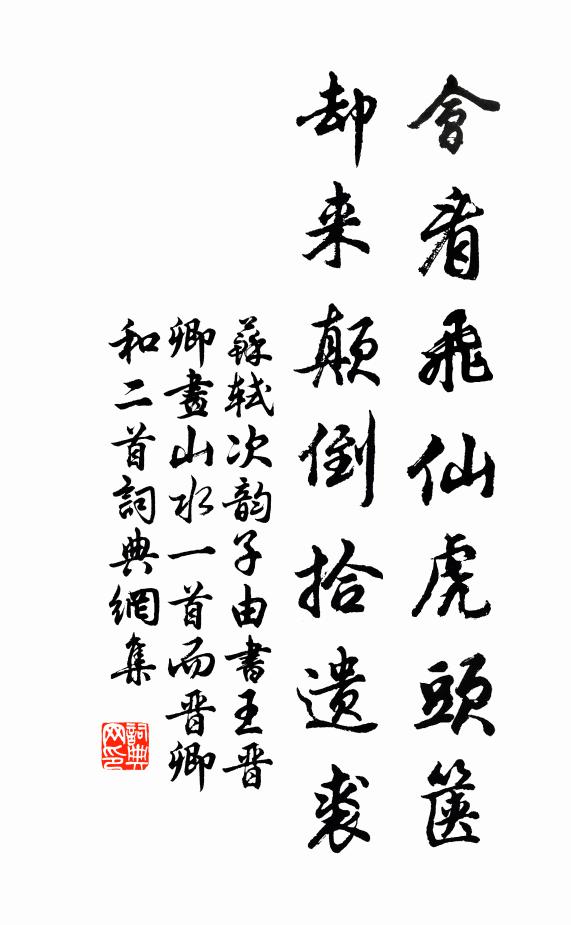 會看飛仙虎頭篋
却来顛倒拾遺裘
蘇軾次韵子由書王晋
卿畫山水一首而晋卿
和二首詞典網集
詞典网印